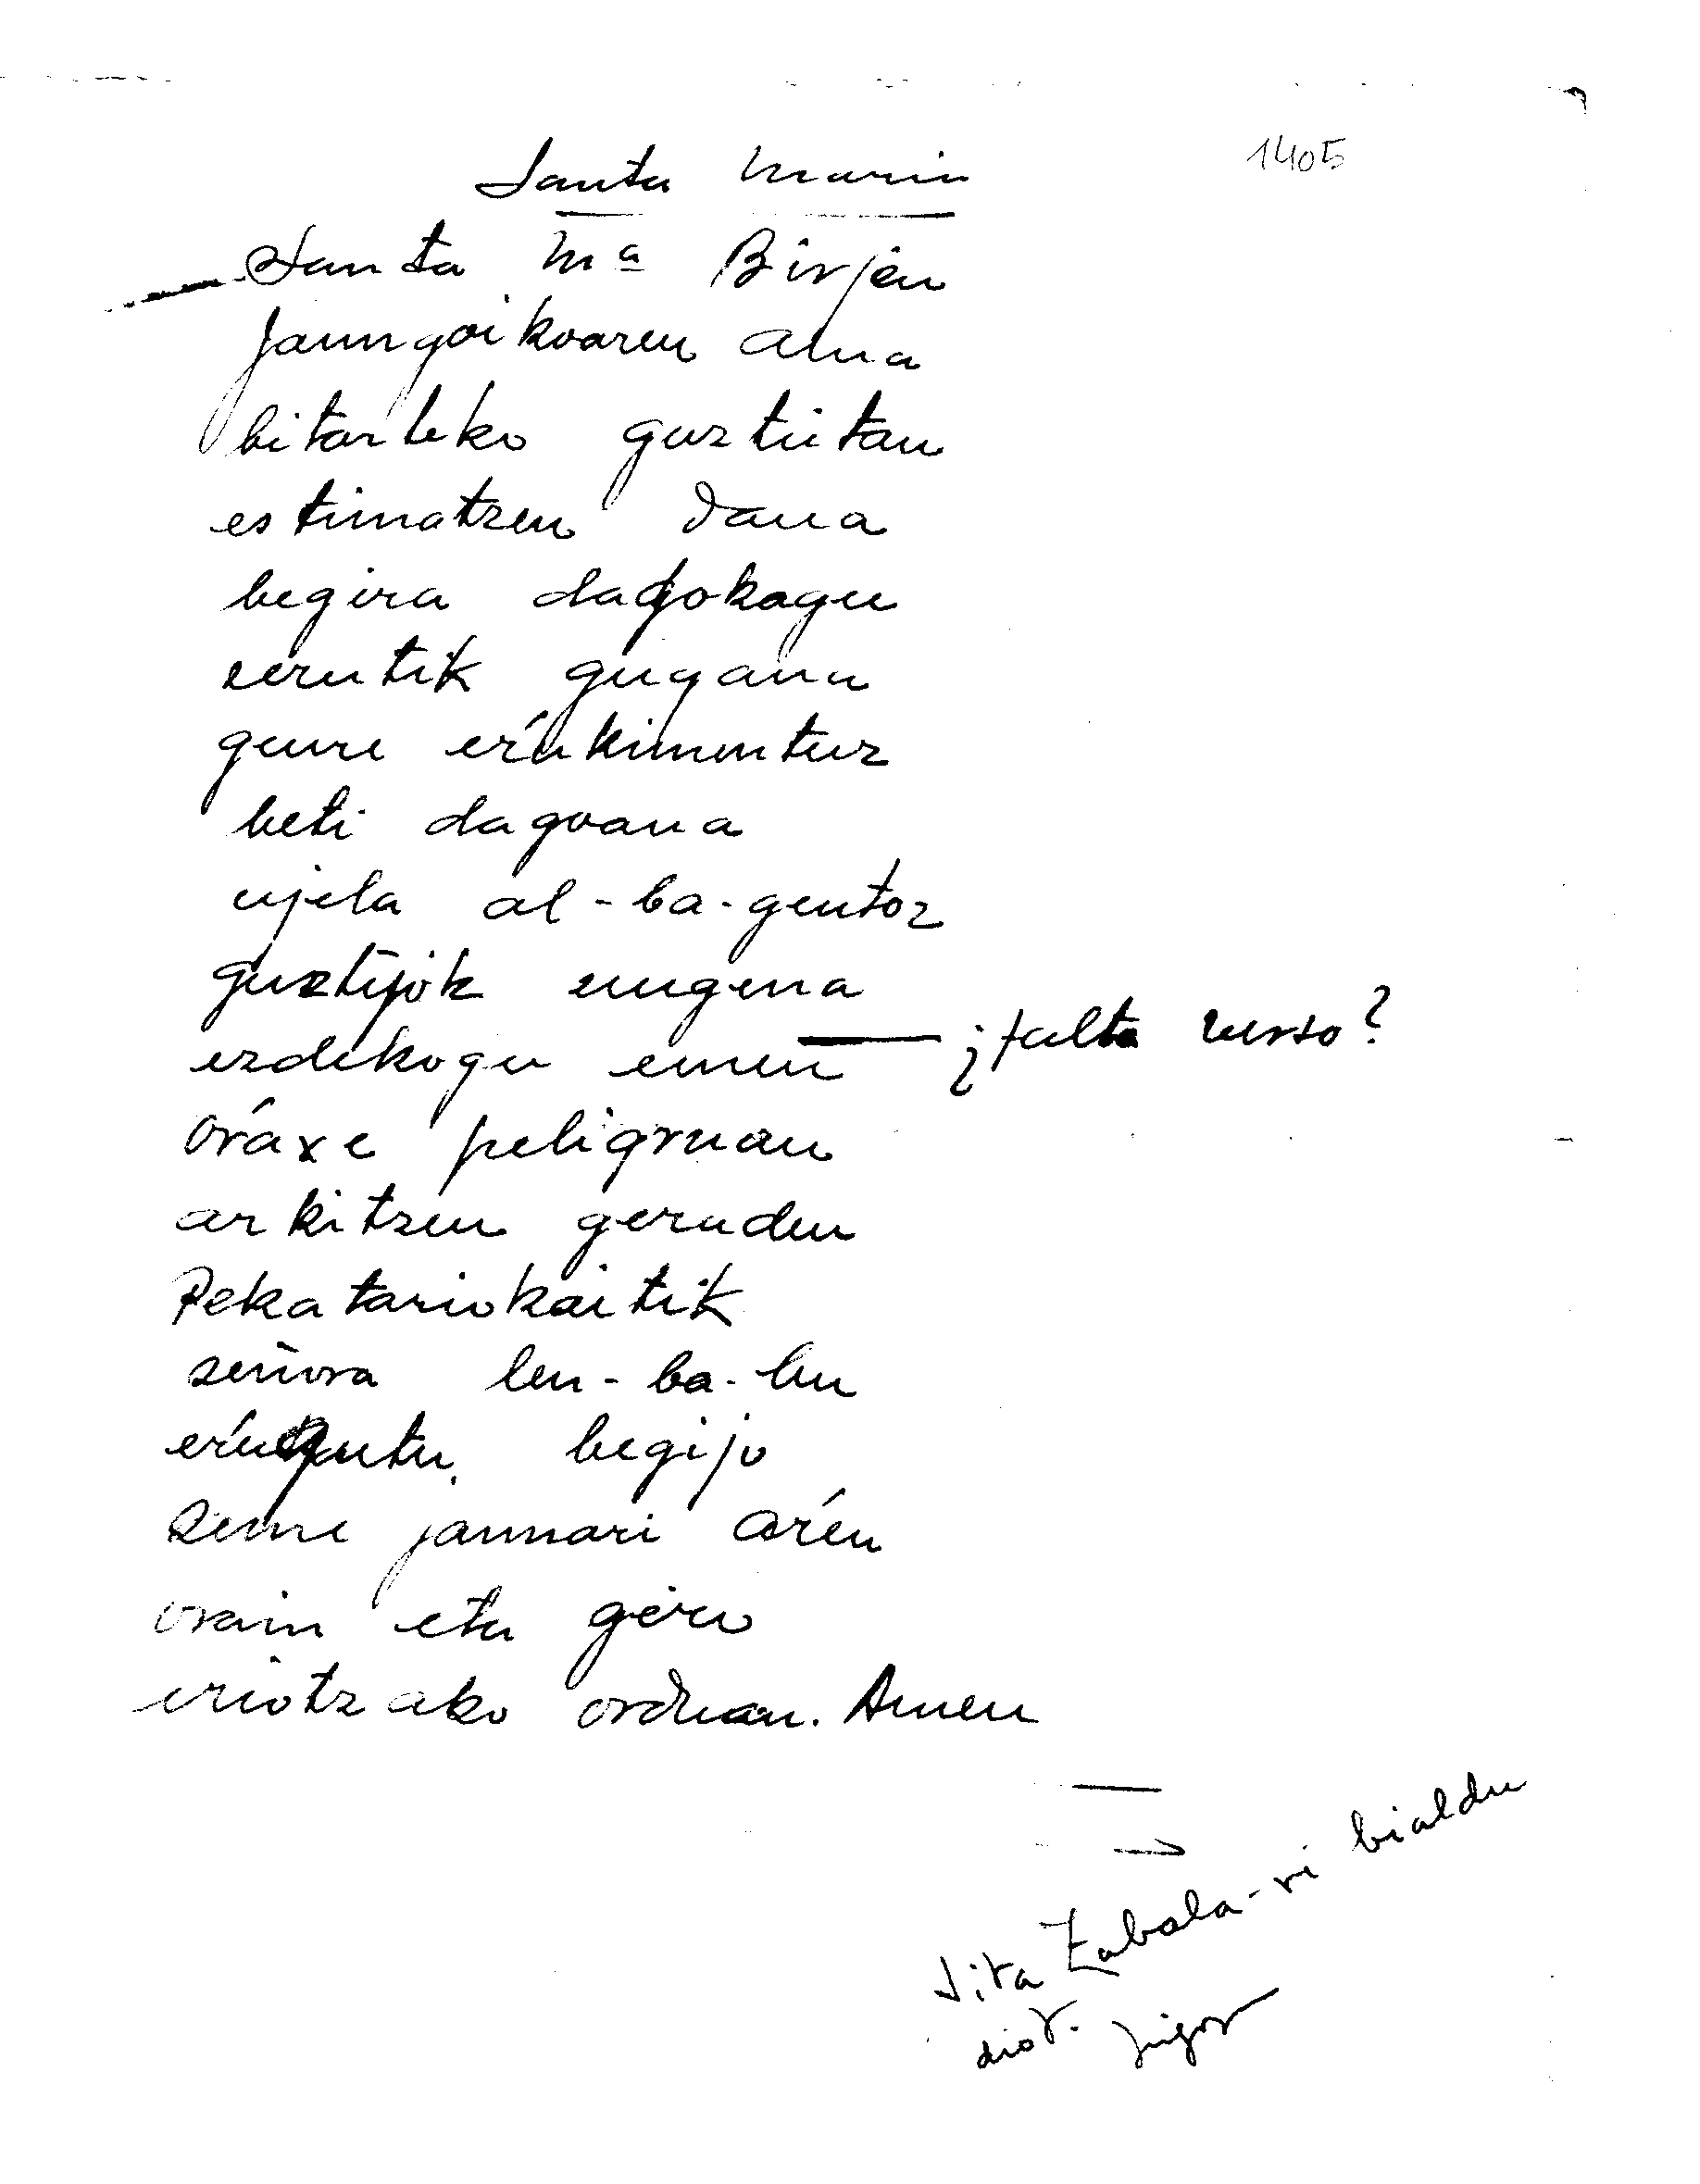 1405
Santa Maria
Santa Mª Birjen
Jaungoikoaren Ama
bitarteko guztiitan
estimatzen dana
begira dagokagu
zerutik gugana
geure eŕukimentuz
beti dagoana
ujela al-ba-gentoz
guztijok zugana
ezdekogu emen — ¿falta verso?
oráxe peligruan
arkitzen geraden
Pekatariokaitik
señora len-ba-len
eŕugutu begijo
Seme jaunari aŕen
orain eta gero
eriotzako orduan. Amen
Jita Zabala-ri bialdu
diot.